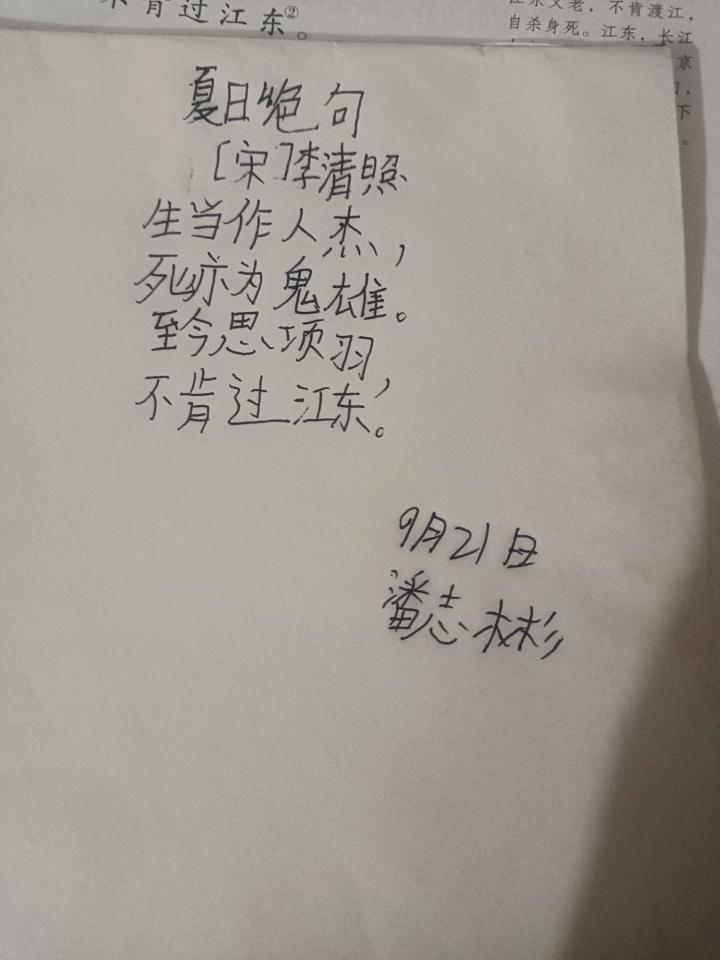 不肯过江东②。
不肯渡江，
自杀身死。江东，长江
京
下
。
夏日绝句
[宋]李清照
生当作人杰，
死亦为鬼雄。
至今思项羽，
不肯过江东。
9月21日
潘志彬